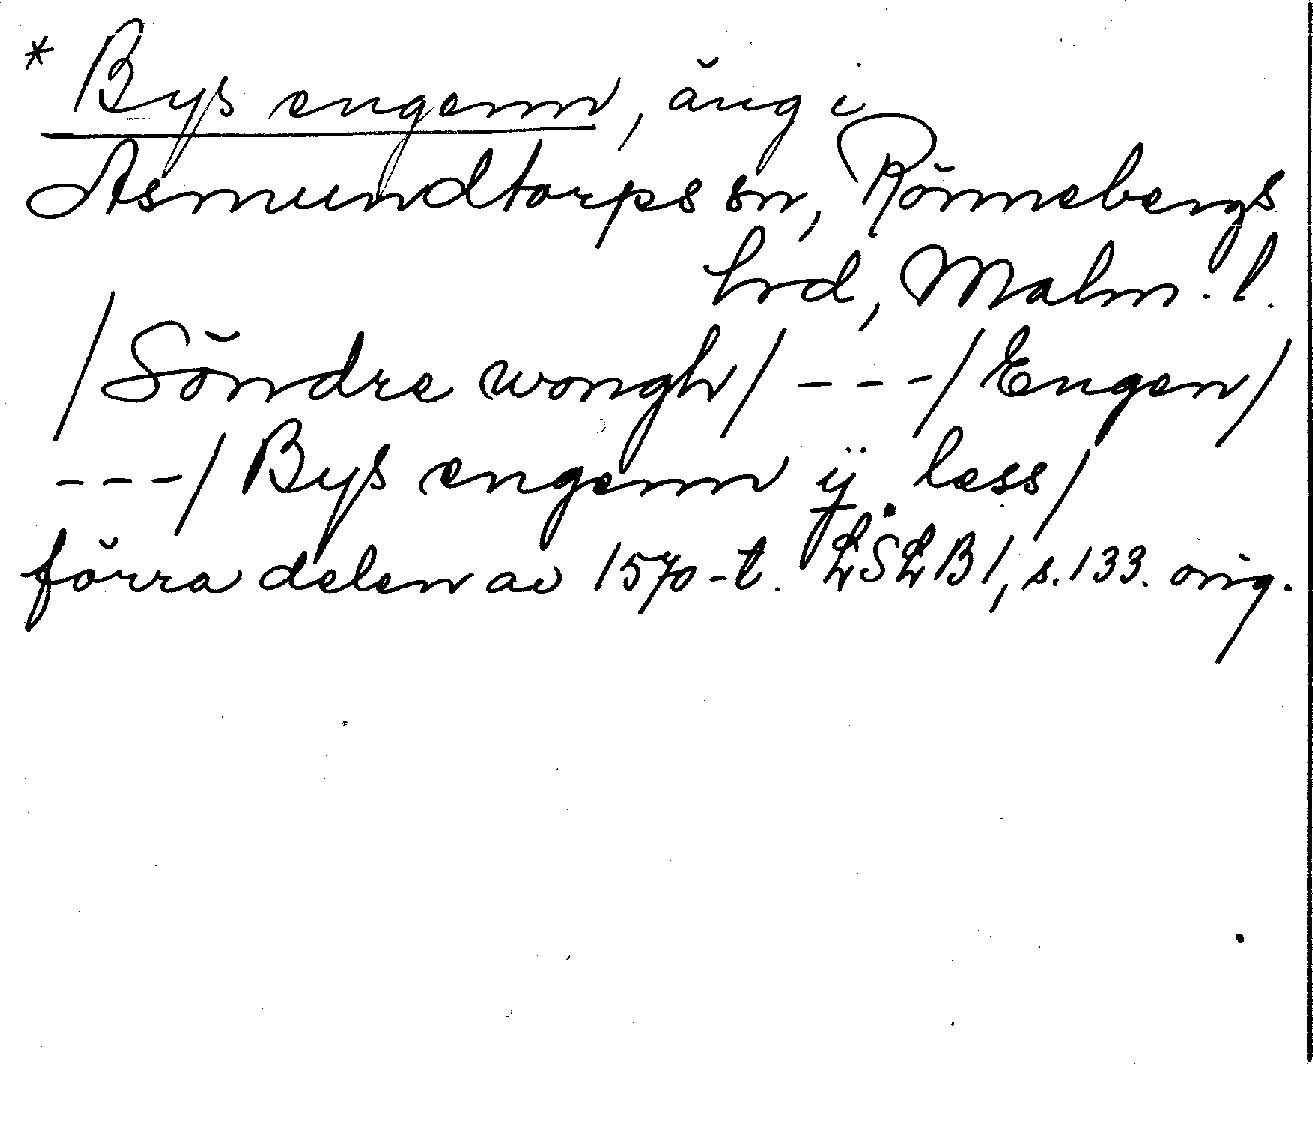 * Bys engenn, äng i
Asmundtorps sn, Rönnebergs
hrd, Malm. l.
/Söndre wongh/ - - -/Engen/
- - -/Bys engenn ÿ. less/
förra delen av 1570-t. LSLB1, s.133. orig.